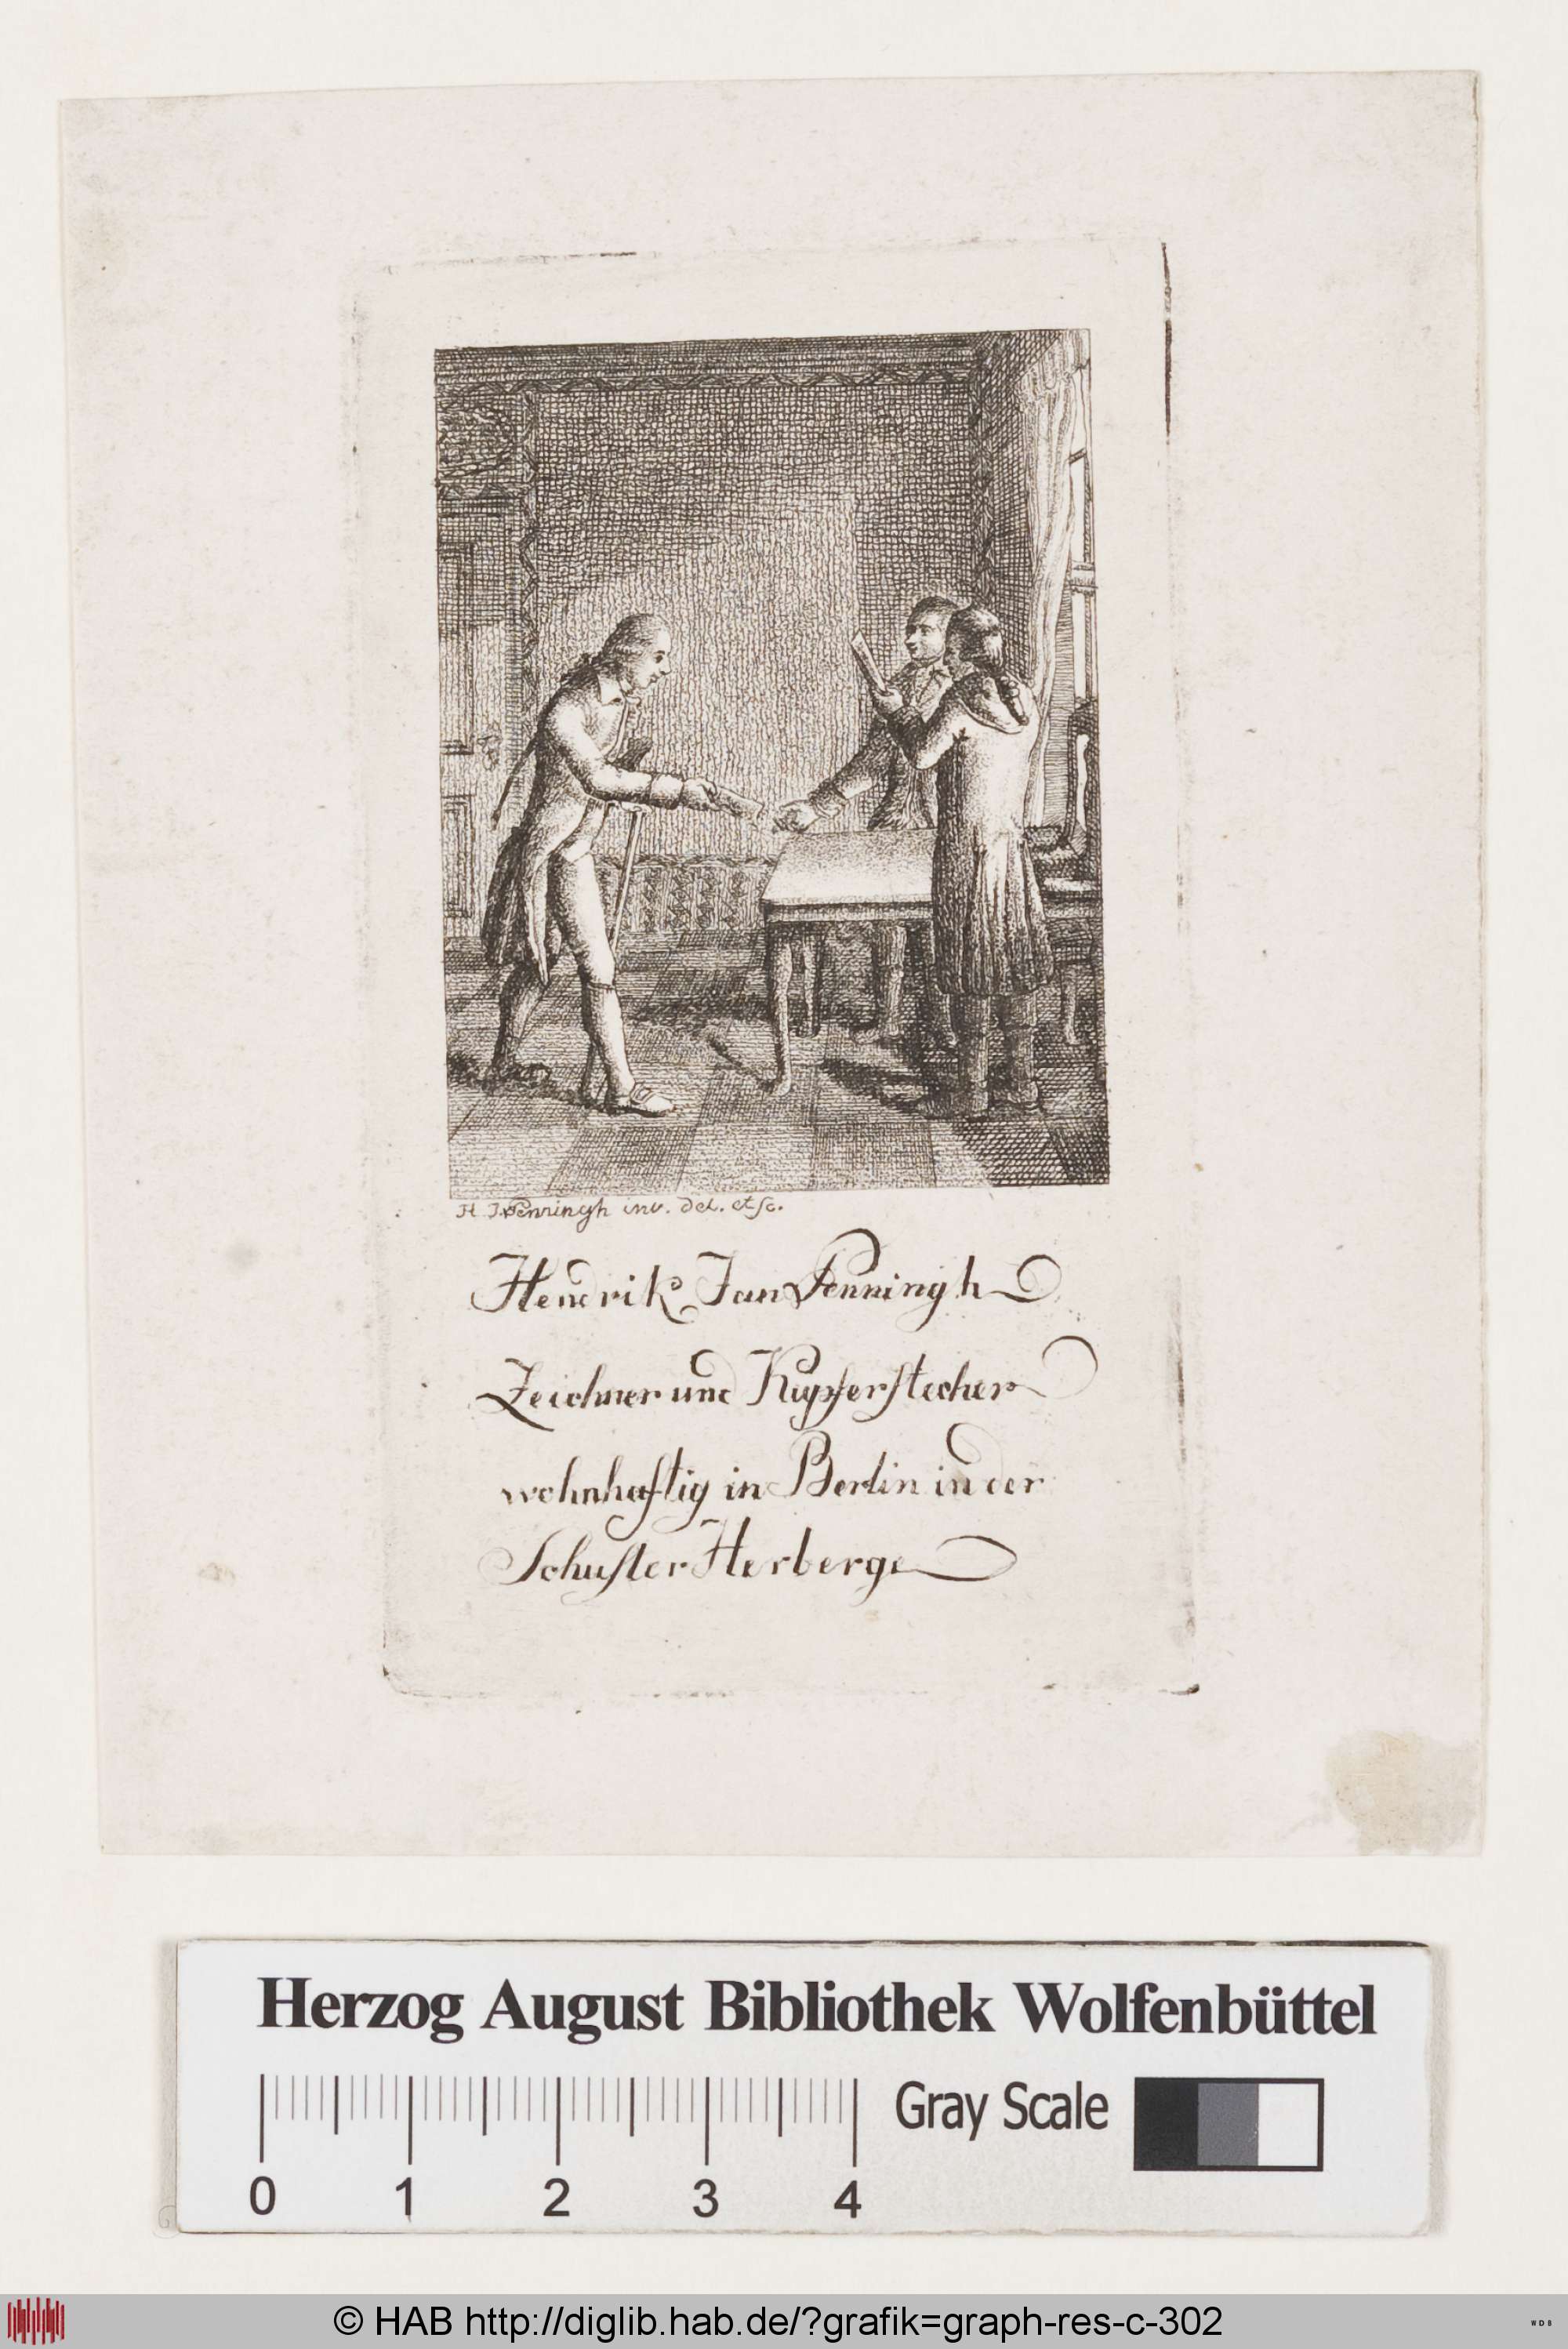 H J Penningh inv. del. et sc.
Hendrik Jan Penningh
Zeichner und Kupferstecher
wohnhaftig in Berlin in der
Schuster Herberge
Herzog August Bibliothek Wolfenbüttel
Gray Scale
0 1 2 3 4
© HAB http://diglib.hab.de/?grafik=graph-res-c-302
WDB